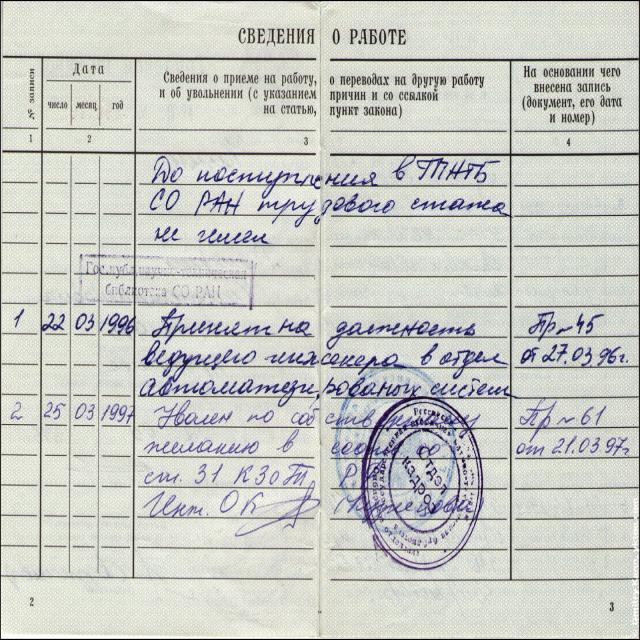 СВЕДЕНИЯ О РАБОТЕ
№ записи
Дата
число месяц год
Сведения о приеме на работу, о переводах на другую работу
и об увольнении (с указанием причин и со ссылкой
на статью, пункт закона)
На основании чего
внесена запись
(документ, его дата
и номер)
1 2 3 4
До поступления в ГПНТБ
СО РАН трудового стажа
не имел
Гос. публ. научно-техническая
библиотека СО РАН
1 22 03 1996 Принят на должность Пр № 45
ведущего инженера в отдел от 27.03.96г.
автоматизированых систем
2 25 03 1997 Уволен по собственному Пр № 61
желанию в соотв. со от 21.03.97г.
ст. 31 КЗоТ Р
Инт. ОК
ОТДЕЛ
КАДРОВ
2
3